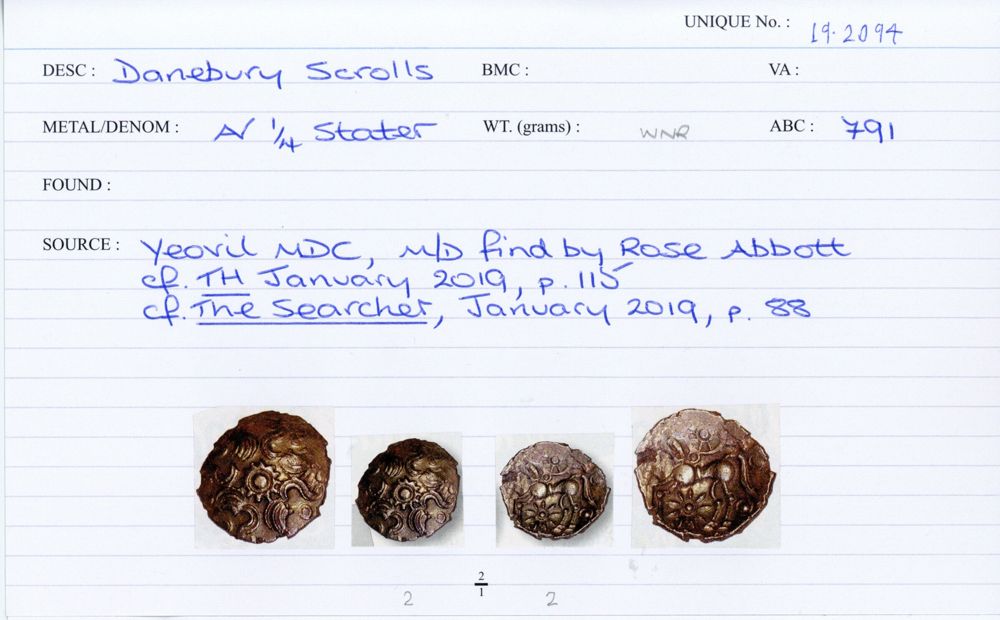 UNIQUE No. : 19.2094
DESC : Danebury Scrolls BMC : VA :
METAL/DENOM : AV 1/4 Stater WT. (grams) : WNR ABC : 791
FOUND :
SOURCE : Yeovil MDC, M/D find by Rose Abbott
cf. TH January 2019, p. 115
cf. The Searcher, January 2019, p. 88
2
1
2 2